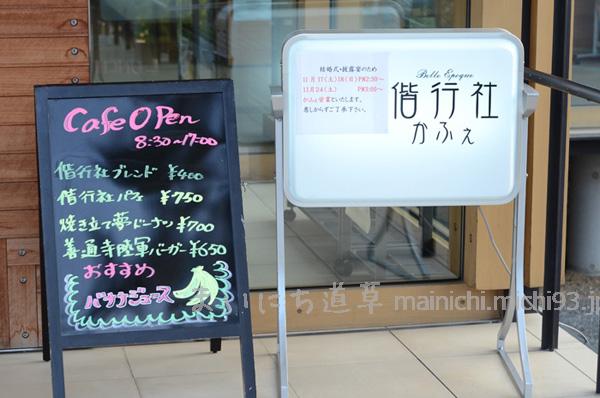 Cafe OPen
8:30~17:00
偕行社ブレンド ¥400
偕行社パフェ ¥750
焼き立て夢ドーナツ ¥700
善通寺陸軍バーガー ¥650
おすすめ
バナナジュース
結婚式・披露宴のため
11月17(土)18(日)PM2:30～
11月24(土) PM3:00～
かふぇ営業といたします。
悪しからずご了承下さい。
Belle Epoque
偕行社
かふぇ
まいにち道草 mainichi.michi93.jp